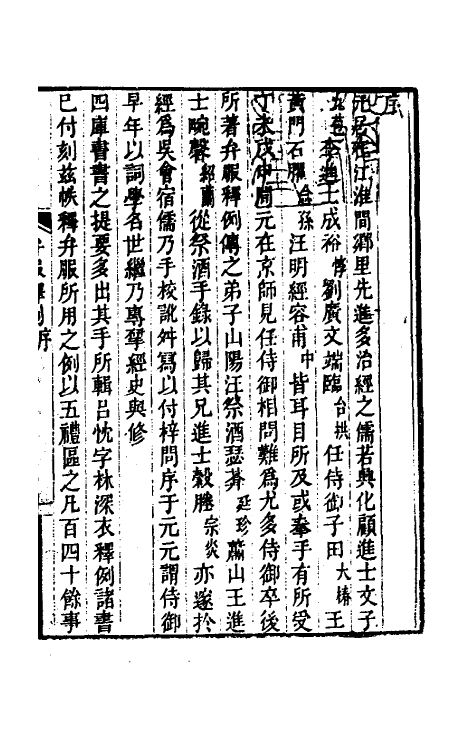 序
元居在江淮間鄉里先進多治經之儒若興化顧進士文子
九苞李進士成裕惇劉廣文端臨台拱任侍御子田大椿王
黃門石臞念孫汪明經容甫中皆耳目所及或奉手有所受
丁未戊申間元在京師見任侍御相問難爲尤多侍御卒後
所著弁服釋例傳之弟子山陽汪祭酒瑟菴廷珍蕭山王進
士畹馨紹蘭從祭酒手錄以歸其兄進士穀塍宗炎亦邃於
經爲吳會宿儒乃手校訛舛寫以付梓問序于元元謂侍御
早年以詞學名世繼乃專硏經史與修
四庫書書之提要多出其手所輯呂忱字林深衣釋例諸書
已付刻茲帙釋弁服所用之例以五禮區之凡百四十餘事